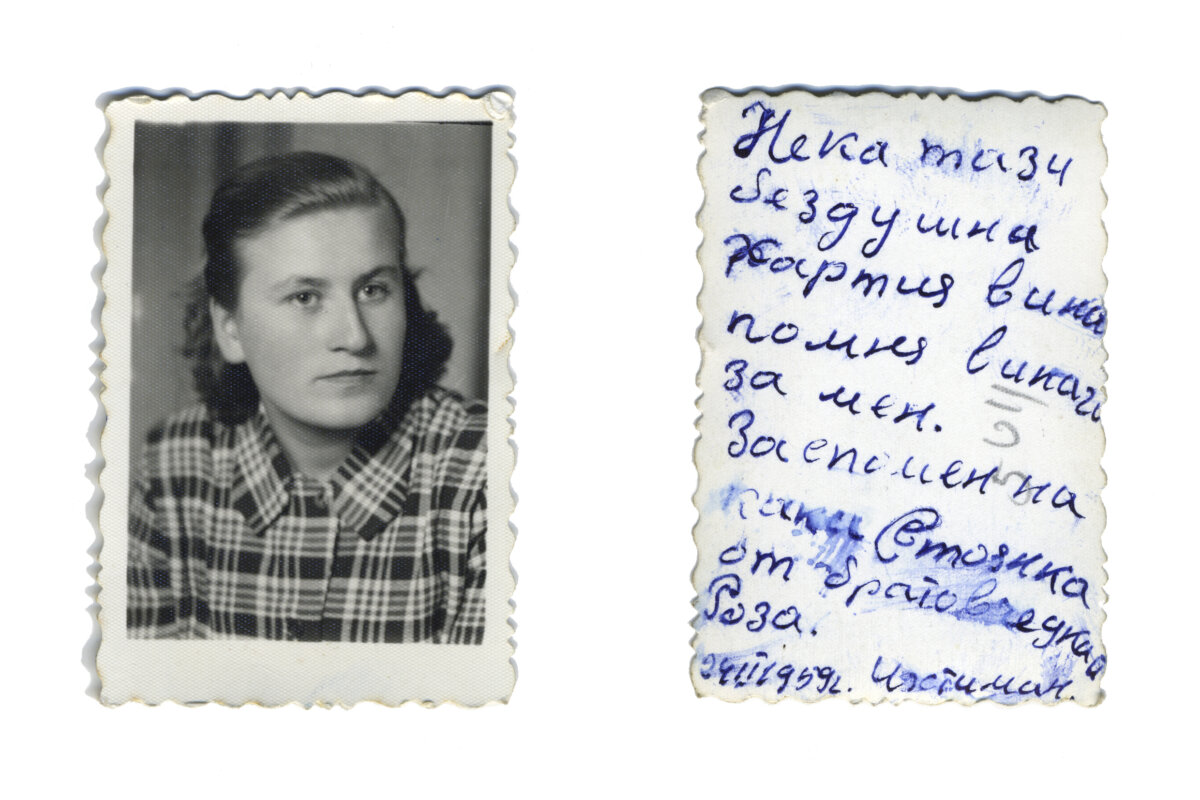 Нека тази
бездушна
хартия вина
помня винаги
за мен.
Заспомен на
каки Стоянка
от братовчедка
Роза.
24 II 1959г. Ихтиман.